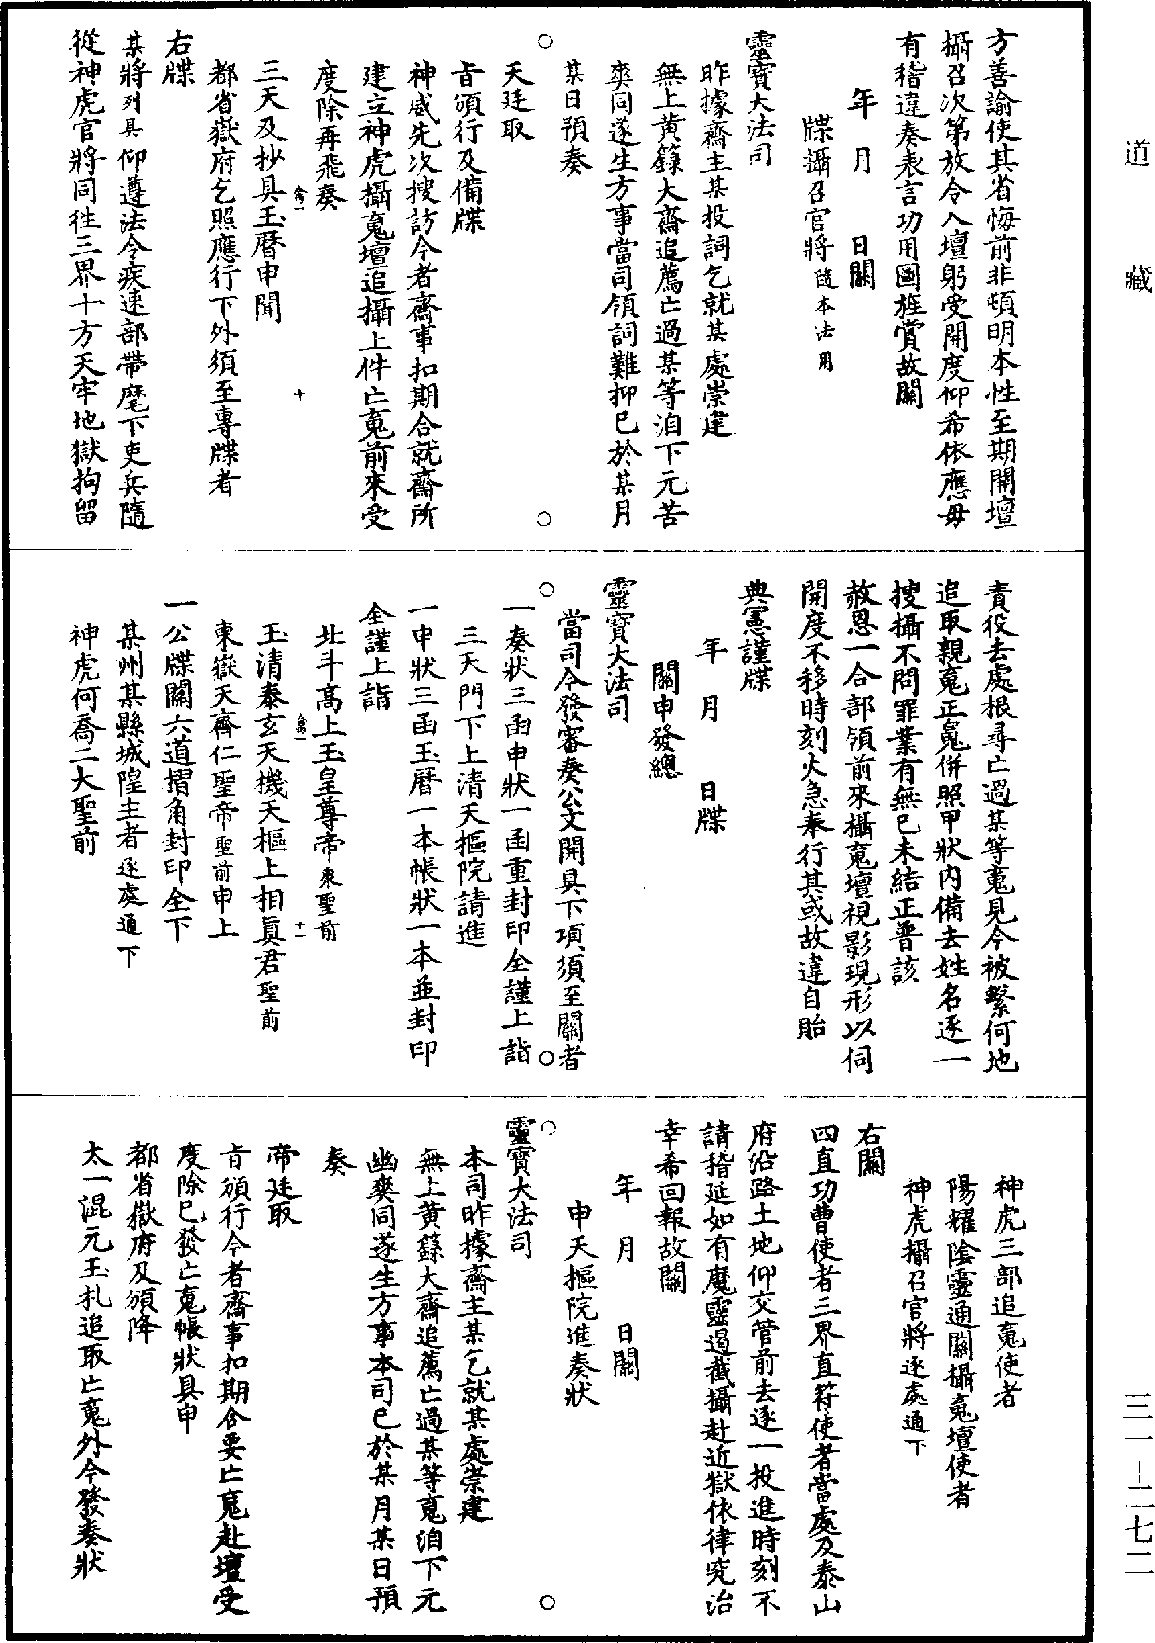 方善諭使其省悔前非頓明本性至期開壇
攝召次第放令入壇躬受開度仰希依應毋
有稽違奏表言功用圖旌賞故關
年月日關
牒攝召官將隨本法用
靈寶大法司
昨據齋主某投詞乞就某處崇建
無上黃籙大齋追薦亡過某等洎下元苦
爽同遂生方事當司領詞難抑已於某月
某日預奏
天廷取
旨頒行及備牒
神威先次搜訪今者齋事扣期合就齋所
建立神虎攝䰟壇追攝上件亡䰟前來受
度除再飛奏
三天及抄具玉曆申聞
都省嶽府乞照應行下外須至專牒者
右牒
某將列具仰遵法令疾速部帶麾下吏兵隨
從神虎官將同徃三界十方天牢地獄拘留
十
責役去處根尋亡過某等䰟見今被繫何地
追取親䰟正䰟併照甲狀內備去姓名逐一
搜攝不問罪業有無已未結正普該
赦恩一合部領前來攝䰟壇視影現形以伺
開度不移時刻火急奉行其或故違自貽
典憲謹牒
年月日牒
關申發總
靈寶大法司
當司今發審奏公文開具下項須至關者
一奏狀三函申狀一函重封印全謹上詣
三天門下上清天樞院請進
一申狀三函玉曆一本帳狀一本並封印
全謹上詣
北斗高上玉皇尊帝東聖前
玉清泰玄天機天樞上相真君聖前
東嶽天齊仁聖帝聖前申上
一公牒關六道摺角封印全下
某州某縣城隍主者逐處通下
神虎何喬二大聖前
十一
神虎三部追䰟使者
陽耀陰靈通關攝䰟壇使者
神虎攝召官將逐處通下
右關
四直功曹使者三界直符使者當處及泰山
府沿路土地仰交管前去逐一投進時刻不
請稽延如有魔靈遏截攝赴近獄依律究治
幸希回報故關
年月日關
申天樞院進奏狀
靈寶大法司
本司昨據齋主某乞就某處崇建
無上黃籙大齋追薦亡過某等䰟洎下元
幽爽同遂生方事本司已於某月某日預
奏
帝廷取
旨頒行今者齋事扣期合要亡䰟赴壇受
度除已發亡䰟帳狀具申
都省嶽府及頒降
太一混元玉札追取亡䰟外今發奏狀
道藏
三一–二七二